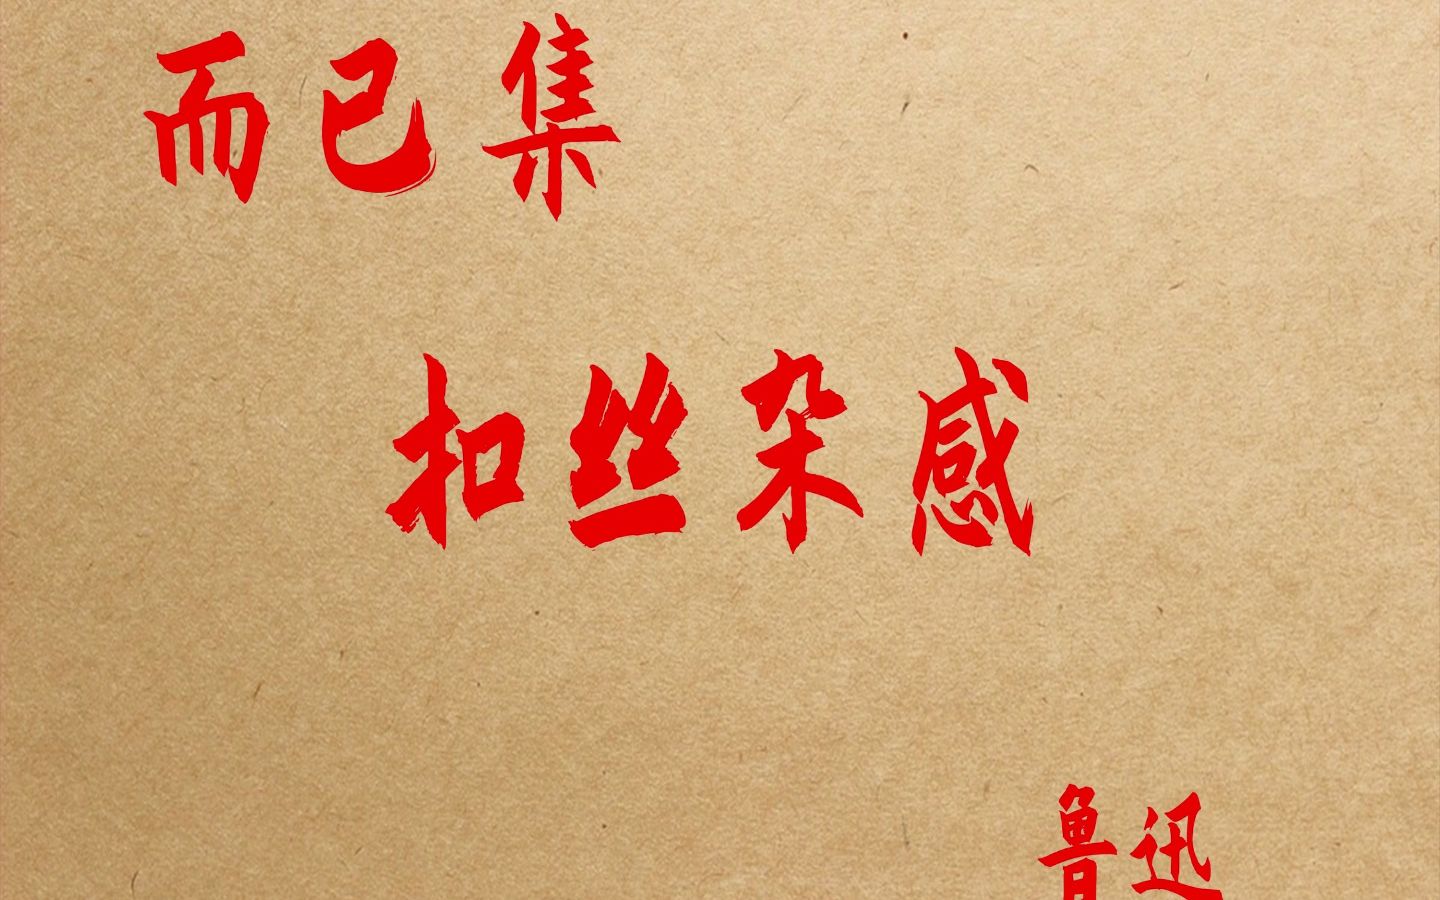 而已集
扣丝杂感
鲁迅